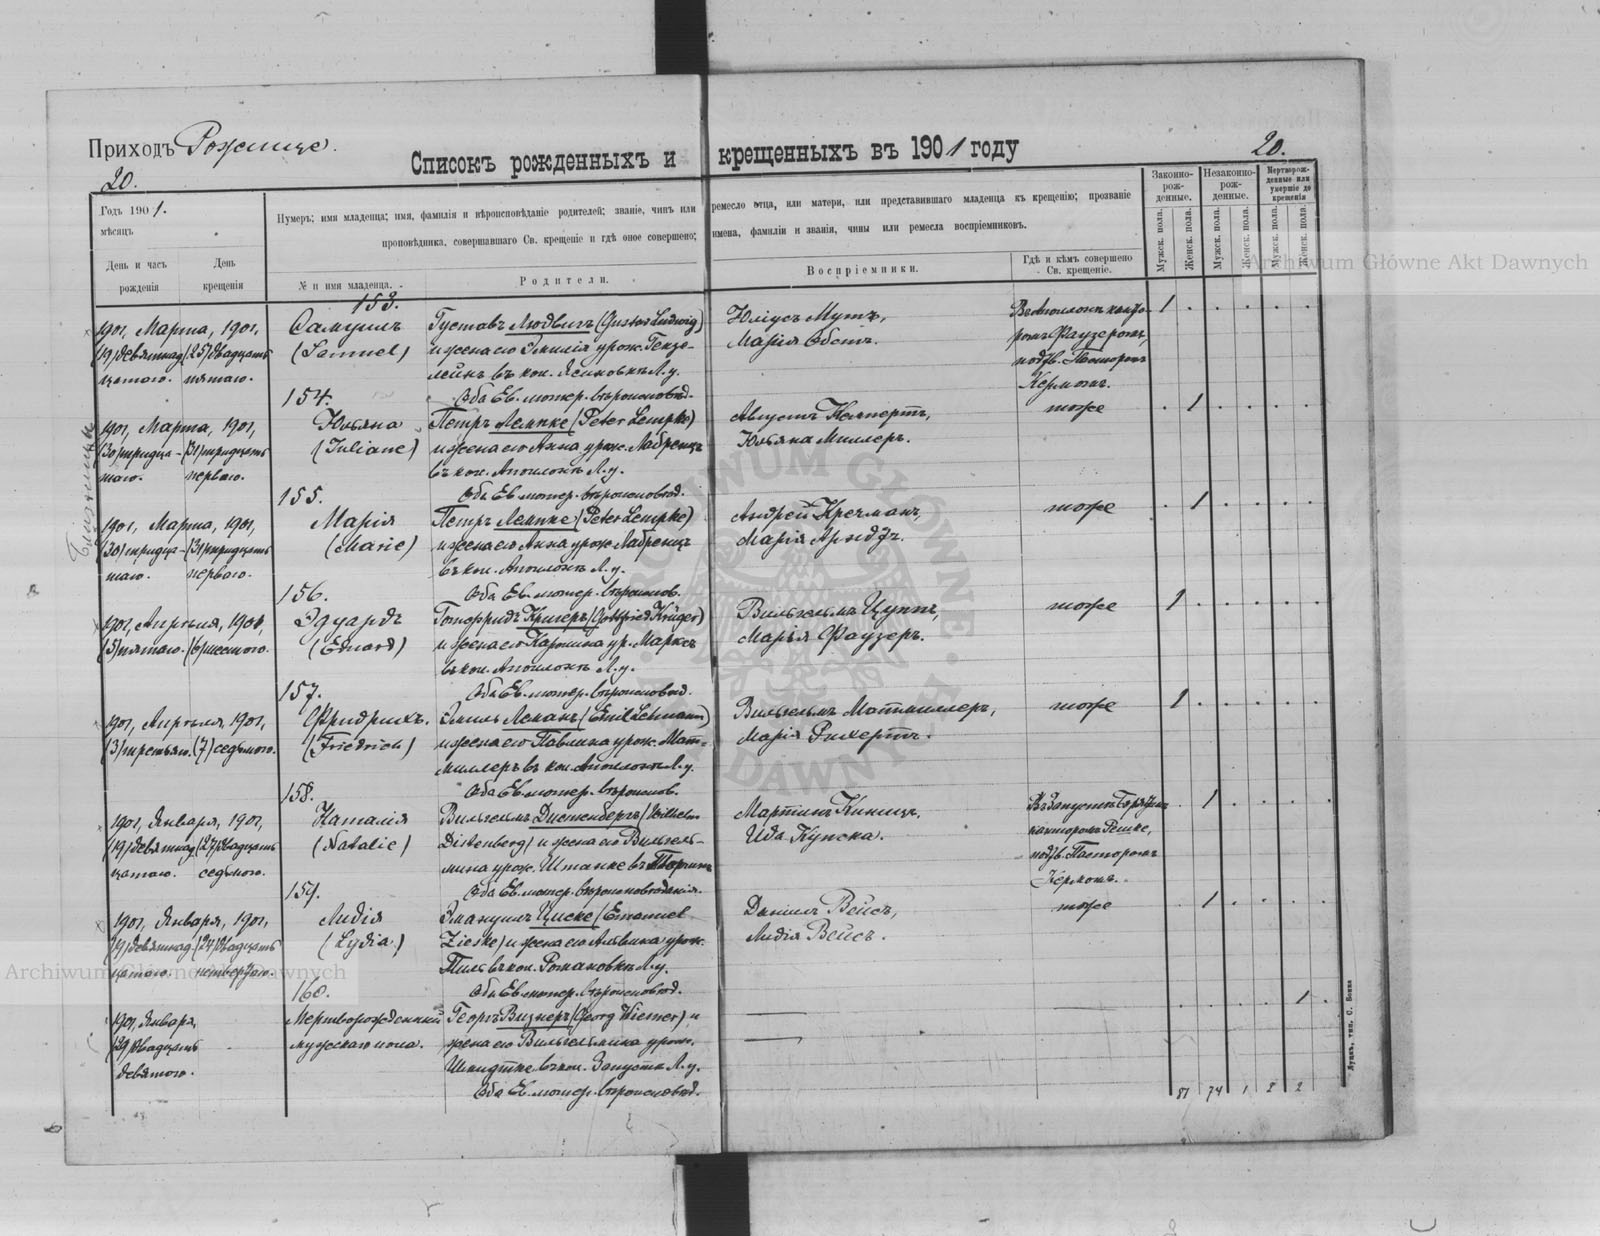 Приходъ Рожище.
Списокъ рожденныхъ и крещенныхъ въ 1901 году
20.
20.
Годъ 1901.
мѣсяцъ
Нумеръ; имя младенца; имя, фамилія и вѣроисповѣданіе родителей; званіе, чинъ или ремесло отца, или матери, или представившаго младенца къ крещенію; прозваніе
проповѣдника, совершавшаго Св. крещеніе и гдѣ оное совершено; имена, фамиліи и званія, чины или ремесла воспріемниковъ.
Законно-рож-денные.
Незаконно-рож-денные.
Мертворож-денные или умершіе до крещенія
Мужск. пола.
Женск. пола.
Мужск. пола.
Женск. пола.
Мужск. пола.
Женск. пола.
День и часъ рожденія
День крещенія
№ и имя младенца.
Родители.
Воспріемники.
Гдѣ и кѣмъ совершено Св. крещеніе.
Archiwum Główne Akt Dawnych
153.
1901, Марта, 1901,
(19) девятнад- (25) двадцать
цатаго. пятаго.
Самуилъ
(Samuel)
Густавъ Людвигъ (Gustav Ludwig)
и жена его Эмилія урож. Гензе-
лейнъ въ кол. Ясиновкѣ Л. у.
Оба Ев. лютер. вѣроисповѣд.
Юліусъ Мутъ,
Марія Обстъ.
Въ Аполонкѣ канто-
ромъ Фаузеромъ,
подтв. Пасторомъ
Кермомъ.
1
154.
Близнецы
1901, Марта, 1901,
(30) тридца- (31) тридцать
таго. перваго.
Юльяна
(Juliane)
Петръ Лемпке (Peter Lempke)
и жена его Анна урож. Лабренцъ
въ кол. Аполонкѣ Л. у.
Оба Ев. лютер. вѣроисповѣд.
Августъ Кемпертъ,
Юльяна Миллеръ.
тоже
1
155.
1901, Марта, 1901,
(30) тридца- (31) тридцать
таго. перваго.
Марія
(Marie)
Петръ Лемпке (Peter Lempke)
и жена его Анна урож. Лабренцъ
въ кол. Аполонкѣ Л. у.
Оба Ев. лютер. вѣроисповѣд.
Андрей Кречманъ,
Марія Арндтъ.
тоже
1
156.
1901, Апрѣля, 1901,
(5) пятаго. (6) шестого.
Эдуардъ
(Eduard)
Готфридъ Кригеръ (Gottfried Krüger)
и жена его Каролина ур. Марксъ
въ кол. Аполонкѣ Л. у.
Оба Ев. лютер. вѣроисповѣд.
Вильгельмъ Цуппъ,
Марья Фаузеръ.
тоже
1
157.
1901, Апрѣля, 1901,
(3) третьяго. (7) седьмого.
Фридрихъ.
(Friedrich)
Эмиль Леманъ (Emil Lehmann)
и жена его Павлина урож. Мат-
миллеръ въ кол. Аполонкѣ Л. у.
Оба Ев. лютер. вѣроисповѣд.
Вильгельмъ Матмиллеръ,
Марія Рихертъ.
тоже
1
158.
1901, Января, 1901,
(19) девятнад- (27) двадцать
цатаго. седьмого.
Наталія
(Natalie)
Вильгельмъ Дистенбергъ (Wilhelm
Distenberg) и жена его Вильгель-
мина урож. Штапке въ
Оба Ев. лютер. вѣроисповѣданія.
Мартинъ Киницъ,
Ида Купска.
канторомъ Решке,
подтв. Пасторомъ
Кермомъ.
1
159.
1901, Января, 1901,
(19) девятнад- (24) двадцать
цатаго. четвертаго.
Лидія
(Lydia)
Эмануилъ Циске (Emanuel
Zieske) и жена его Альвина урож.
Тиль въ кол. Романовкѣ Л. у.
Оба Ев. лютер. вѣроисповѣд.
Даніилъ Вейсъ,
Лидія Вейсъ.
тоже
1
160.
1901, Января,
(29) двадцать
девятого.
Мертворожденный
мужскаго пола.
Георгъ Визнеръ (Georg Wiesner) и
жена его Вильгельмина урож.
Шмидтке въ кол. Запустѣ Л. у.
Оба Ев. лютер. вѣроисповѣд.
1
81 74 1 2 2
Луцкъ, тип. С. Бокка
Archiwum Główne Akt Dawnych
ARCHIWUM GŁÓWNE AKT DAWNYCH